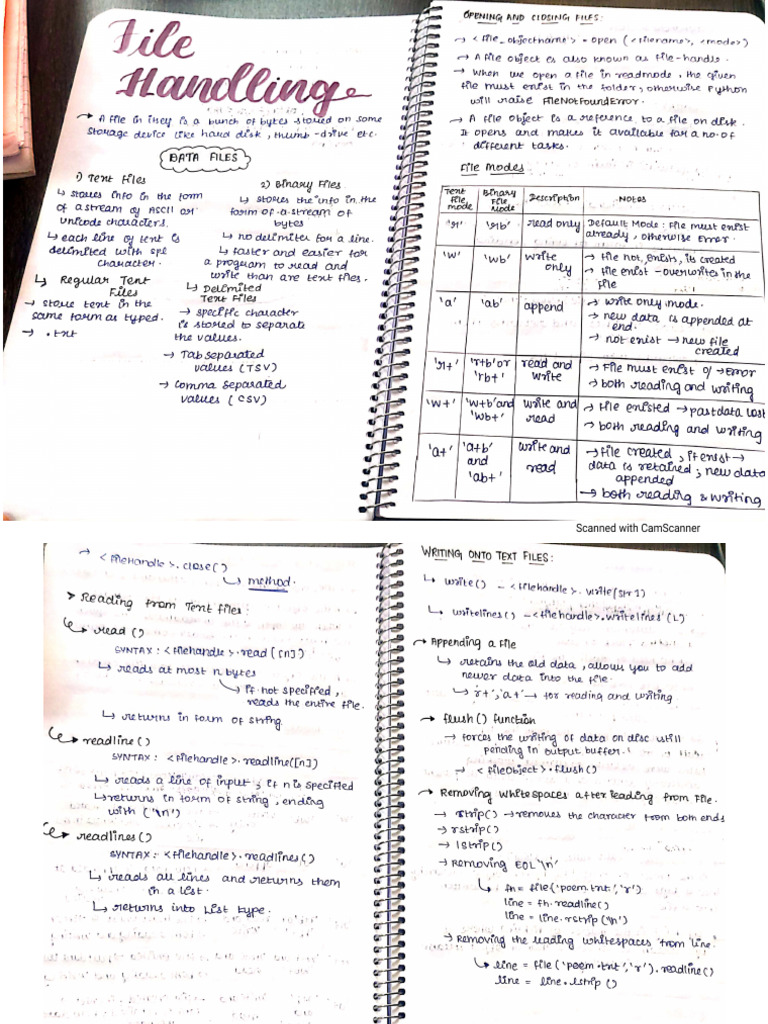 File
Handling
→ A file in itself is a bunch of bytes stored on some
storage device like hard disk, thumb-drive etc.
DATA FILES
1) Text Files
↳ stores info in the form
of a stream of ASCII or
unicode characters.
↳ each line of text is
delimited with spl
character.
↳ Regular Text
Files
→ store text in the
same form as typed.
→ .txt
2) Binary Files
↳ stores the info in the
form of a stream of
bytes
↳ no delimiter for a line.
↳ faster and easier for
a program to read and
write than are text files.
↳ Delimited
Text Files
→ specific character
is stored to separate
the values.
→ Tab separated
values (TSV)
→ Comma separated
values (CSV)
OPENING AND CLOSING FILES:
→ <file_objectname> = open (<filename>, <mode>)
→ A file object is also known as file-handle.
→ When we open a file in readmode, the given
file must exist in the folder, otherwise Python
will raise FileNotFoundError.
→ A file object is a reference to a file on disk.
It opens and makes it available for a no. of
different tasks.
File Modes
Text File mode | Binary File Mode | Description | NOTES
'r' | 'rb' | read only | Default Mode: File must exist
already, otherwise Error.
'w' | 'wb' | write only | → file not exish, its created
→ file exist - overwrites in the
file
'a' | 'ab' | append | → write only mode.
→ new data is appended at
end.
→ not exist → new file
created
'r+' | 'r+b' or 'rb+' | read and write | → File must exist o/→Error
→ both reading and writing
'w+' | 'w+b' and 'wb+' | write and read | → file existed → past data lost
→ both reading and writing
'a+' | 'a+b' and 'ab+' | write and read | → file created, if exist →
data is retained; new data
appended
→ both reading & writing
Scanned with CamScanner
→ <filehandle>.close()
↳ method.
➤ Reading from Text files:
↳ read ()
SYNTAX: <filehandle>.read([n])
↳ reads at most n bytes
↳ if not specified,
reads the entire file.
↳ returns in form of string
↳ readline()
SYNTAX: <filehandle>.readline([n])
↳ reads a line of input; if n is specified
↳ returns in form of string, ending
with ('\n')
↳ readlines()
SYNTAX: <filehandle>.readlines()
↳ reads all lines and returns them
in a list.
↳ returns into List type.
WRITING ONTO TEXT FILES:
↳ write() - <filehandle>.write(str1)
↳ writelines() - <filehandle>.writelines (L)
→ Appending a File
↳ retains the old data, allows you to add
newer data into the file.
↳ 'r+','a+' → for reading and writing
→ flush() function
→ forces the writing of data on disc still
pending in output buffer.
→ <fileObject>.flush()
→ Removing whitespaces after leading from File.
→ strip() → removes the character from both ends
→ rstrip()
→ lstrip()
→ Removing EOL '\n'
↳ fh = file('poem.txt','r')
line = fh.readline()
line = line.rstrip('\n')
→ Removing the leading whitespaces from line.
↳ line = file ('poem.txt','r').readline()
line = line.lstrip ()